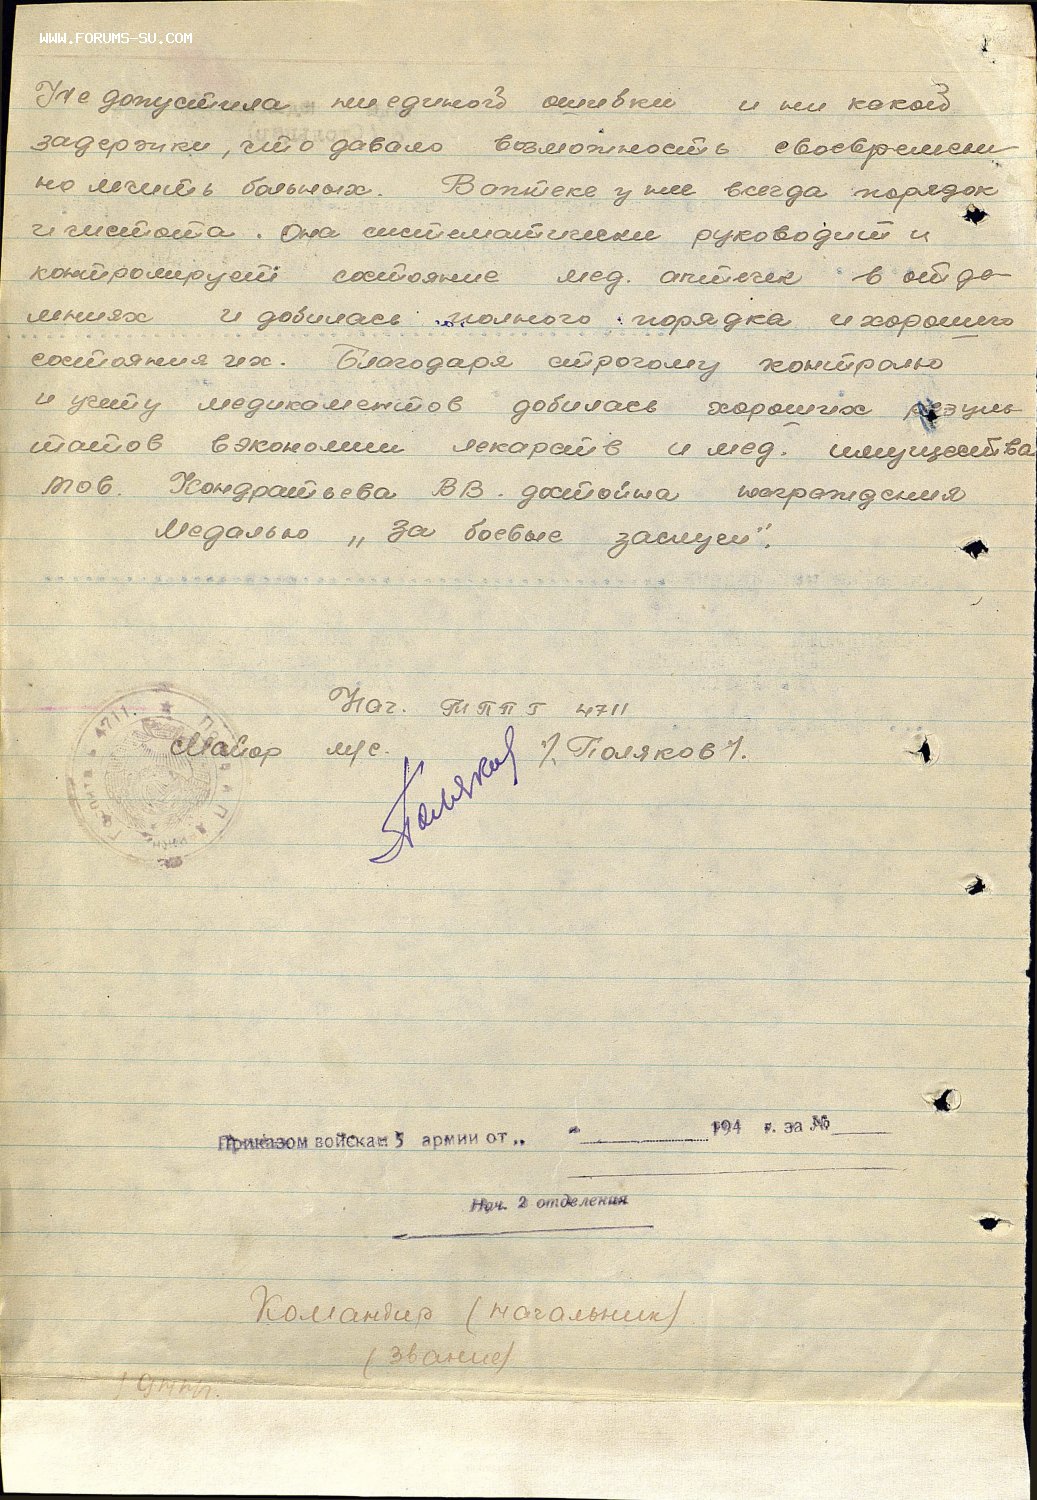 WWW.FORUMS-SU.COM
Не допустила ни единой ошибки и ни какой
задержки, что давало возможность своевремен
но лечить больных. В аптеке у ни всегда порядок
и чистота. Она систематически руководит и
контролирует состояние мед. аптечек в отде-
лениях и добилась полного порядка и хорошего
состояния их. Благодаря строгому контролю
и учету медикаментов добилась хороших резуль
татов в экономии лекарств и мед. имущества
Тов. Кондратьева В В. достойна награждения
Медалью „За боевые заслуги".
Нач. ТППГ 4711
Майор м/с. /Поляков/.
Поляков
4711
Приказом войскам 5 армии от „ " 194 г. за №
Нач. 2 отделения
Командир (начальник)
(звание)